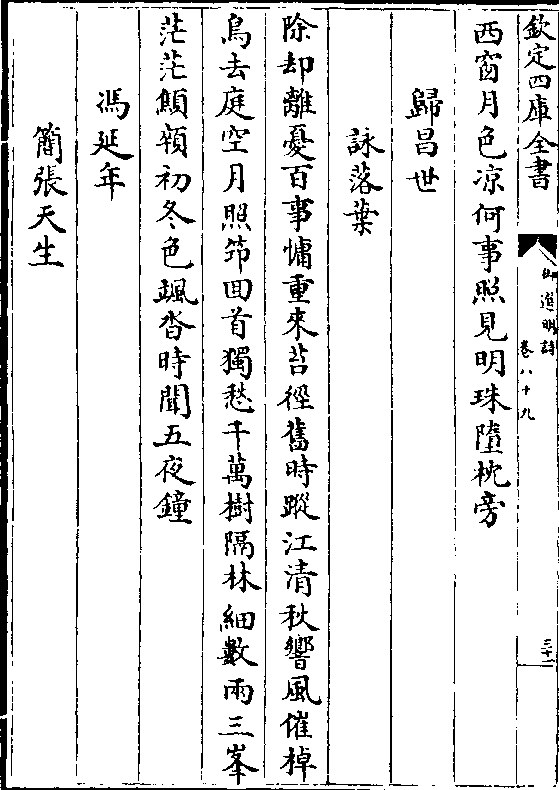 欽定四庫全書
御選明詩
卷八十九
三十二
西窗月色凉何事照見明珠墮枕旁
歸昌世
詠落葉
除却離憂百事慵重來苔徑舊時蹤江清秋響風催棹
烏去庭空月照笻回首獨愁千萬樹隔林細數兩三峯
茫茫顛領初冬色颯沓時聞五夜鐘
馮延年
簡張天生